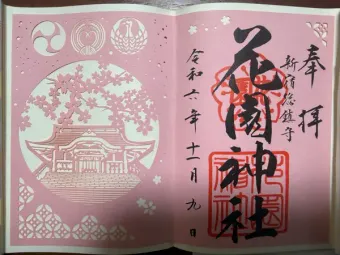 奉拝
新宿総鎮守
花園神社
令和六年十一月九日